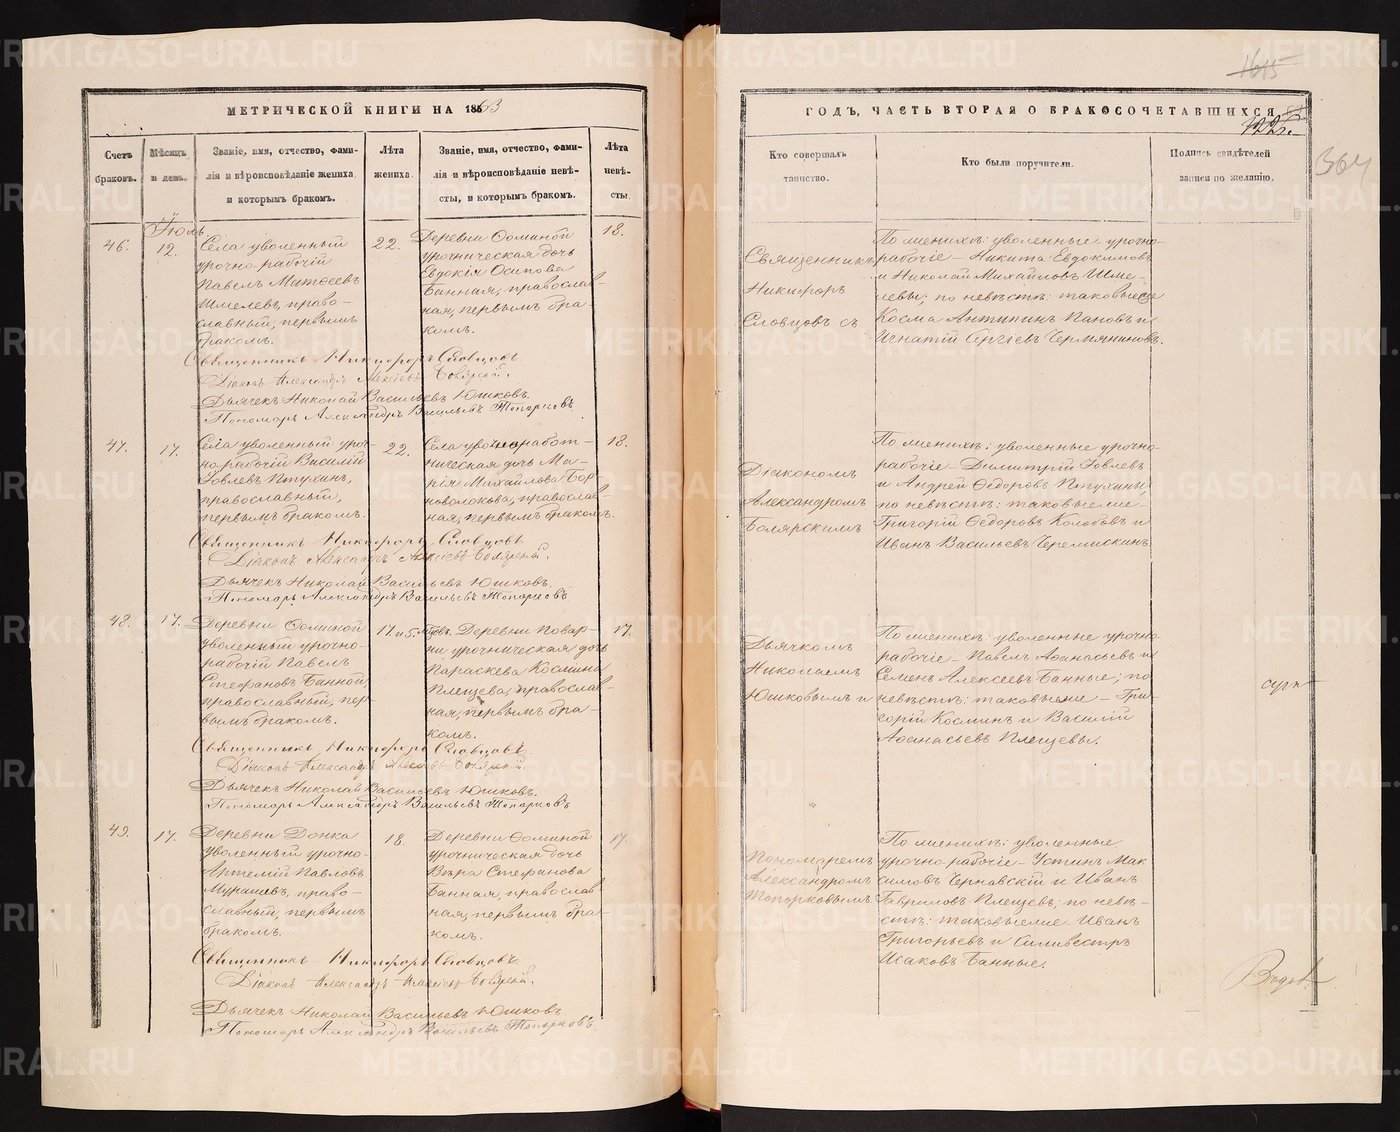 МЕТРИЧЕСКОЙ КНИГИ НА 1863
Счетъ браковъ.
Мѣсяцъ и день.
Званіе, имя, отчество, фами-
лія и вѣроисповѣданіе жениха
и которымъ бракомъ.
Лѣта жениха.
Званіе, имя, отчество, фами-
лія и вѣроисповѣданіе невѣ-
сты, и которымъ бракомъ.
Лѣта невѣ-
сты.
Іюль
46.
12.
Села уволенный
урочно рабочій
Павелъ Матѳеевъ
Шмелевъ, право-
славный, первымъ
бракомъ.
22.
Деревни Ѳоминой
урочническая дочь
Евдокія Осипова
Банная, православ-
ная, первымъ бра-
комъ.
18.
Священникъ Никифоръ Словцовъ
Діаконъ Александръ Алексіевъ Боярскій.
Дьячекъ Николай Васильевъ Юшковъ.
Пономарь Александръ Васильевъ Топорковъ
47.
17.
Села уволенный уроч-
но-рабочій Василій
Іовлевъ Птухинъ,
православный,
первымъ бракомъ.
22.
Села
ническая дочь Ма-
рія Михайлова Бор-
новолокова, православ-
ная, первымъ бракомъ.
18.
Священникъ Никифоръ Словцовъ
Діаконъ Александръ Алексіевъ Боярскій.
Дьячекъ Николай Васильевъ Юшковъ.
Пономарь Александръ Васильевъ Топорковъ
48.
17.
Деревни Ѳоминой
уволенный урочно-
рабочій Павелъ
Стефановъ Банной
православный, пер-
вымъ бракомъ.
17 и 5.
Деревни Повар-
ни урочническая дочь
Параскева Космина
Плещева, православ-
ная, первымъ бра-
комъ.
17.
Священникъ Никифоръ Словцовъ
Діаконъ Александръ Алексіевъ Боярскій.
Дьячекъ Николай Васильевъ Юшковъ.
Пономарь Александръ Васильевъ Топорковъ
49.
17.
Деревни Донка
уволенный урочно-
Артемій Павловъ
Мурашевъ, право-
славный, первымъ
бракомъ.
18.
Деревни Ѳоминой
урочническая дочь
Вѣра Стефанова
Банная, православ-
ная, первымъ бра-
комъ.
17.
Священникъ Никифоръ Словцовъ
Діаконъ Александръ Алексіевъ Боярскій.
Дьячекъ Николай Васильевъ Юшковъ
Пономарь Александръ Васильевъ Топорковъ.
1615
ГОДЪ, ЧАСТЬ ВТОРАЯ О БРАКОСОЧЕТАВШИХСЯ
364
Кто совершалъ
таинство.
Кто были поручители.
Подпись свидѣтелей
записи по желанію.
Священникъ
Никифоръ
Словцовъ съ
По женихѣ: уволенные урочно-
рабочіе – Никита Евдокимовъ
и Николай Михайловъ Шме-
левы; по невѣстѣ: таковые же
Косма Антипинъ Пановъ и
Игнатій Сергіевъ Чермяниновъ.
Діакономъ
Александромъ
Боярскимъ
По женихѣ: уволенные урочно-
рабочіе – Димитрій Іовлевъ
и Андрей Ѳедоровъ Птухины,
по невѣстѣ: таковые же –
Григорій Ѳедоровъ Колобовъ и
Иванъ Васильевъ Черемискинъ
Дьячкомъ
Николаемъ
Юшковымъ и
По женихѣ: уволенные урочно-
рабочіе – Павелъ Аѳанасьевъ и
Семенъ Алексеевъ Банные; по
невѣстѣ: таковые же – Гри-
горій Косминъ и Василій
Аѳанасьевъ Плещевы.
Пономаремъ
Александромъ
Топорковымъ
По женихѣ: уволенные
урочно-рабочіе – Устинъ Мак
симовъ Чернавскій и Иванъ
Гавриловъ Плещевъ; по невѣ-
стѣ: таковые же – Иванъ
Григорьевъ и Сильвестръ
Исаковъ Банные.
METRIKI.GASO-URAL.RU